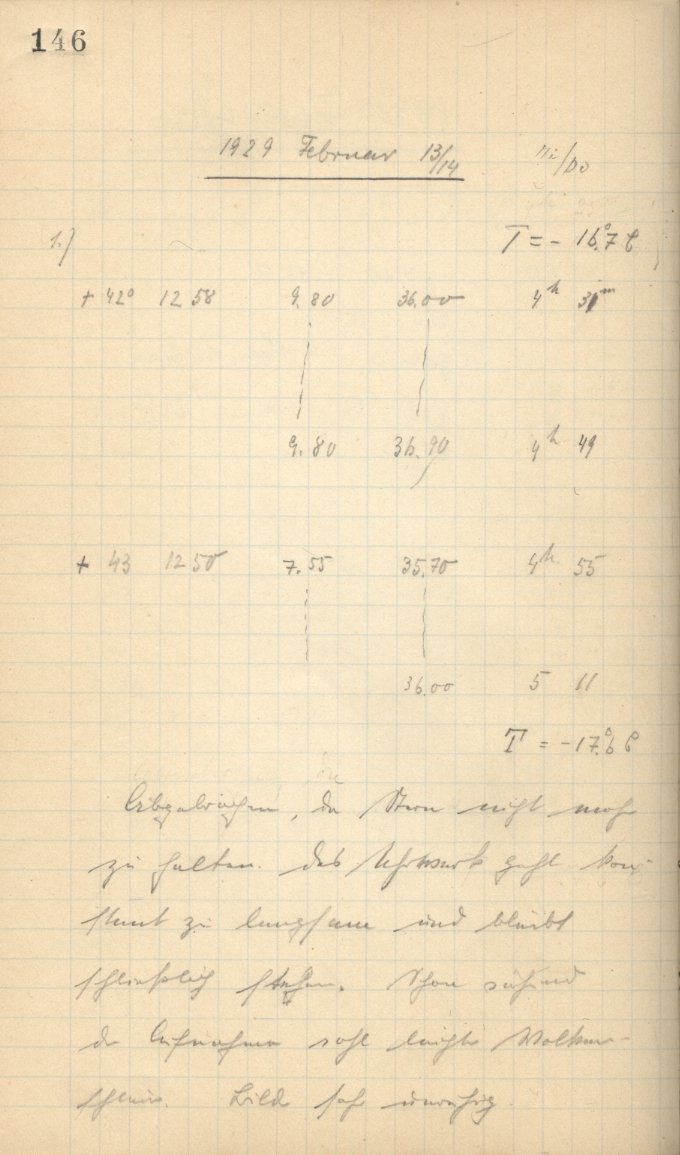 146
1929 Februar 13/14 Mi/Do
1.) T = - 16.°7 C
+ 42° 12 58 9.80 36.00 4h 31m
9.80 36.90 4h 49
+ 43 12 50 7.55 35.70 4h 55
36.00 5 11
T = -17.°6 C
Abgebrochen, da Stern nicht mehr
zu halten. Das Uhrwerk geht kon-
stant zu langsam und bleibt
schließlich stehen. Schon während
der Aufnahmen leichte Wolken-
schleier. Bild sehr unruhig.